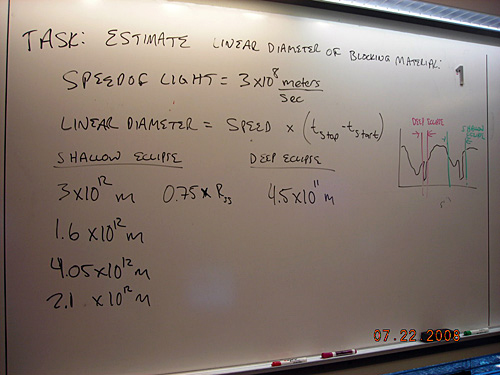 TASK: ESTIMATE LINEAR DIAMETER OF BLOCKING MATERIAL:
1
SPEED OF LIGHT = 3x10^8 meters/sec
LINEAR DIAMETER = SPEED x (t_stop - t_start)
SHALLOW ECLIPSE DEEP ECLIPSE
3x10^12 m 0.75 x R_ss 4.5x10^11 m
1.6 x10^12 m
4.05x10^12 m
2.1 x10^12 m
DEEP ECLIPSE
SHALLOW
07.22.2008